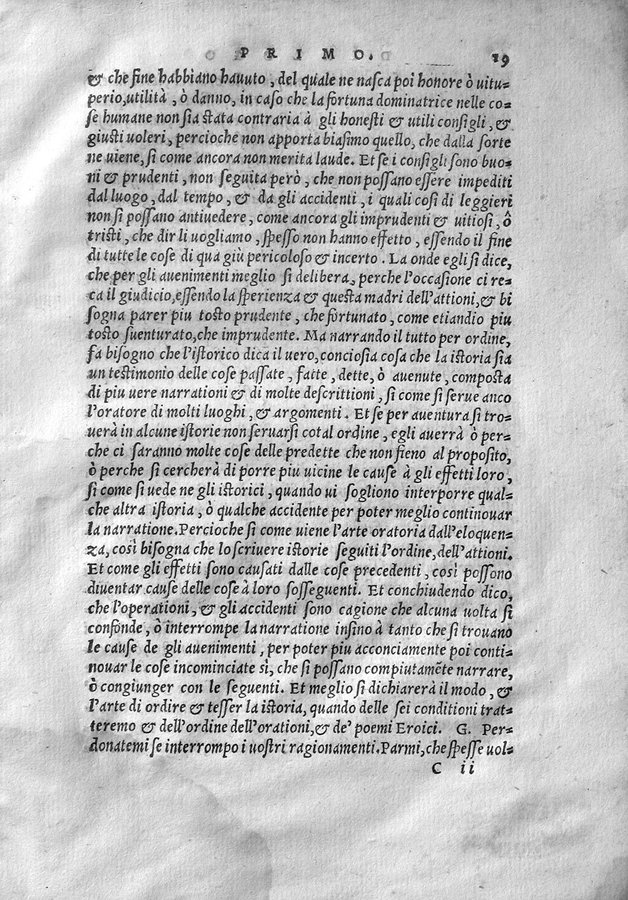 PRIMO. 19
& che fine habbiano havuto, del quale ne nasca poi honore ò uitu-
perio, utilità, ò danno, in caso che la fortuna dominatrice nelle co-
se humane non sia stata contraria à gli honesti & utili consigli, &
giusti uoleri, percioche non apporta biasimo quello, che dalla sorte
ne uiene, si come ancora non merita laude. Et se i consigli sono buo-
ni & prudenti, non seguita però, che non possano essere impediti
dal luogo, dal tempo, & da gli accidenti, i quali cosi di leggieri
non si possano antiuedere, come ancora gli imprudenti & uitiosi, ò
tristi, che dir li uogliamo, spesso non hanno effetto, essendo il fine
di tutte le cose di qua giù pericoloso & incerto. La onde egli si dice,
che per gli auenimenti meglio si delibera, perche l'occasione ci re-
ca il giudicio, essendo la sperienza & questa madri dell'attioni, & bi
sogna parer piu tosto prudente, che fortunato, come etiandio piu
tosto suenturato, che imprudente. Ma narrando il tutto per ordine,
fa bisogno che l'istorico dica il uero, conciosia cosa che la istoria sia
un testimonio delle cose passate, fatte, dette, ò auenute, composta
di piu uere narrationi & di molte descrittioni, si come si serue anco
l'oratore di molti luoghi, & argomenti. Et se per auentura si tro-
uerà in alcune istorie non seruarsi cotal ordine, egli auerrà ò per-
che ci saranno molte cose delle predette che non fieno al proposito,
ò perche si cercherà di porre piu uicine le cause à gli effetti loro,
si come si uede ne gli istorici, quando ui sogliono interporre qual-
che altra istoria, ò qualche accidente per poter meglio continouar
la narratione. Percioche si come uiene l'arte oratoria dall'eloquen-
za, così bisogna che lo scriuere istorie seguiti l'ordine, dell'attioni.
Et come gli effetti sono causati dalle cose precedenti, così possono
diuentar cause delle cose à loro sosseguenti. Et conchiudendo dico,
che l'operationi, & gli accidenti sono cagione che alcuna uolta si
confonde, ò interrompe la narratione insino à tanto che si trouano
le cause de gli auenimenti, per poter piu acconciamente poi conti-
nouar le cose incominciate sì, che si possano compiutamẽte narrare,
ò congiunger con le seguenti. Et meglio si dichiarerà il modo, &
l'arte di ordire & tesser la istoria, quando delle sei conditioni trat-
teremo & dell'ordine dell'orationi, & de' poemi Eroici. G. Per-
donatemi se interrompo i uostri ragionamenti. Parmi, che spesse uol-
C ii